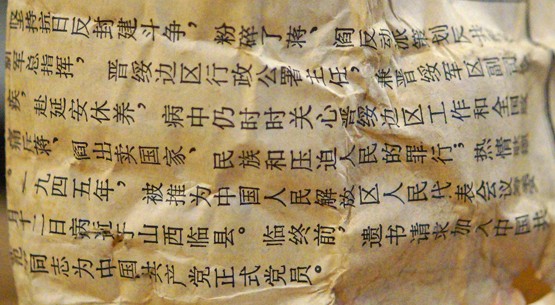 坚持抗日反封建斗争，粉碎了蒋、阎反动派策划反
军总指挥，晋绥边区行政公署主任，兼晋绥军区副
疾，赴延安休养，病中仍时时关心晋绥边区工作和全国
痛斥蒋、阎出卖国家、民族和压迫人民的罪行；热情
。一九四五年，被推为中国人民解放区人民代表会议
月十二日病逝于山西临县。临终前，遗书请求加入中国共
范同志为中国共产党正式党员。